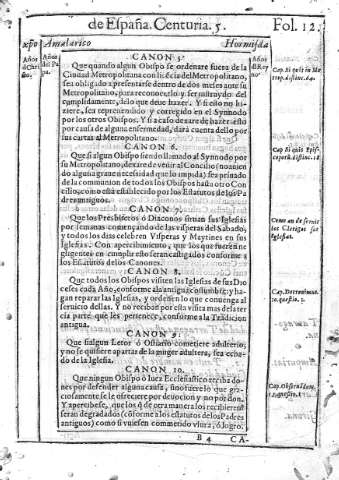 de España. Centuria. 5.
Fol. 12.
xp̃o Amalarico
Hormisda
Años de Christo.
Años del Papa.
Años del Rey
CANON 5.
Que quando algun Obispo se ordenare fuera de la
Ciudad Metropolitana con licẽcia del Metropolitano,
sea obligado a presentarse dentro de dos meses ante su
Metropolitano, para conocerlo y ser instruydo del
cumplidamente, d'lo que deue hazer. Y si esto no hi-
ziere, sea reprehendido y corregido en el Synodo
por los otros Obispos. Y si a caso dexare de hazer esto
por causa de alguna enfermedad, dará cuenta dello por
sus cartas al Metropolitano.
CANON 6.
Que si algun Obispo siendo llamado al Synodo por
su Metropolitano, dexare de venir al Concilio (no auien-
do alguna graue necessidad que lo impida) sea priuado
de la communion de todos los Obispos hasta otro Con-
cilio, como está establecido por los Estatutos de los Pa-
dres antiguos.
CANON 7.
Que los Presbiteros ó Diaconos siruan sus Iglesias
por semanas començando de las visperas del Sabado,
y todos los dias celebren Visperas y Maytines en sus
Iglesias. Con apercibimiento, que los que fueren ne
gligentes en cumplir esto seran castigado conforme a
los Estatutos de los Canones.
CANON 8.
Que todos los Obispos visiten las Iglesias de sus Dio
ceses cada Año, conforme a la antigua costumbre; y ha-
gan reparar las Iglesias, y ordenen lo que conuenga al
seruicio dellas. Y no reciban por esta visita mas de la ter
cia parte que les pertenece, conforme a la Tradicion
antigua.
CANON 9.
Que si algun Letor ó Ostiario cometiere adulterio;
y no se quisiere apartar de la muger adultera, sea echa-
do de la Iglesia.
CANON 10.
Que ningun Obispo ó Iuez Ecclesiastico reciba do-
nes por defender alguna causa, sino fuere lo que gra-
ciosamente se le ofreciere por deuocion y no por don.
Y apercibese, que los q̃ de otra manera los recibieren
seran degradados (conforme a los estatutos de los Padres
antiguos) como si vuiessen cometido vsura, ó logro.
Cap. Si quis in Me
trop. distinc. 64.
Cap. Si quis Epis-
coporũ. distinc. 18
Como an de seruir
los Clerigos sus
Iglesias.
Cap. Decreuimus.
10. quæstio. 1.
B 4
CA-